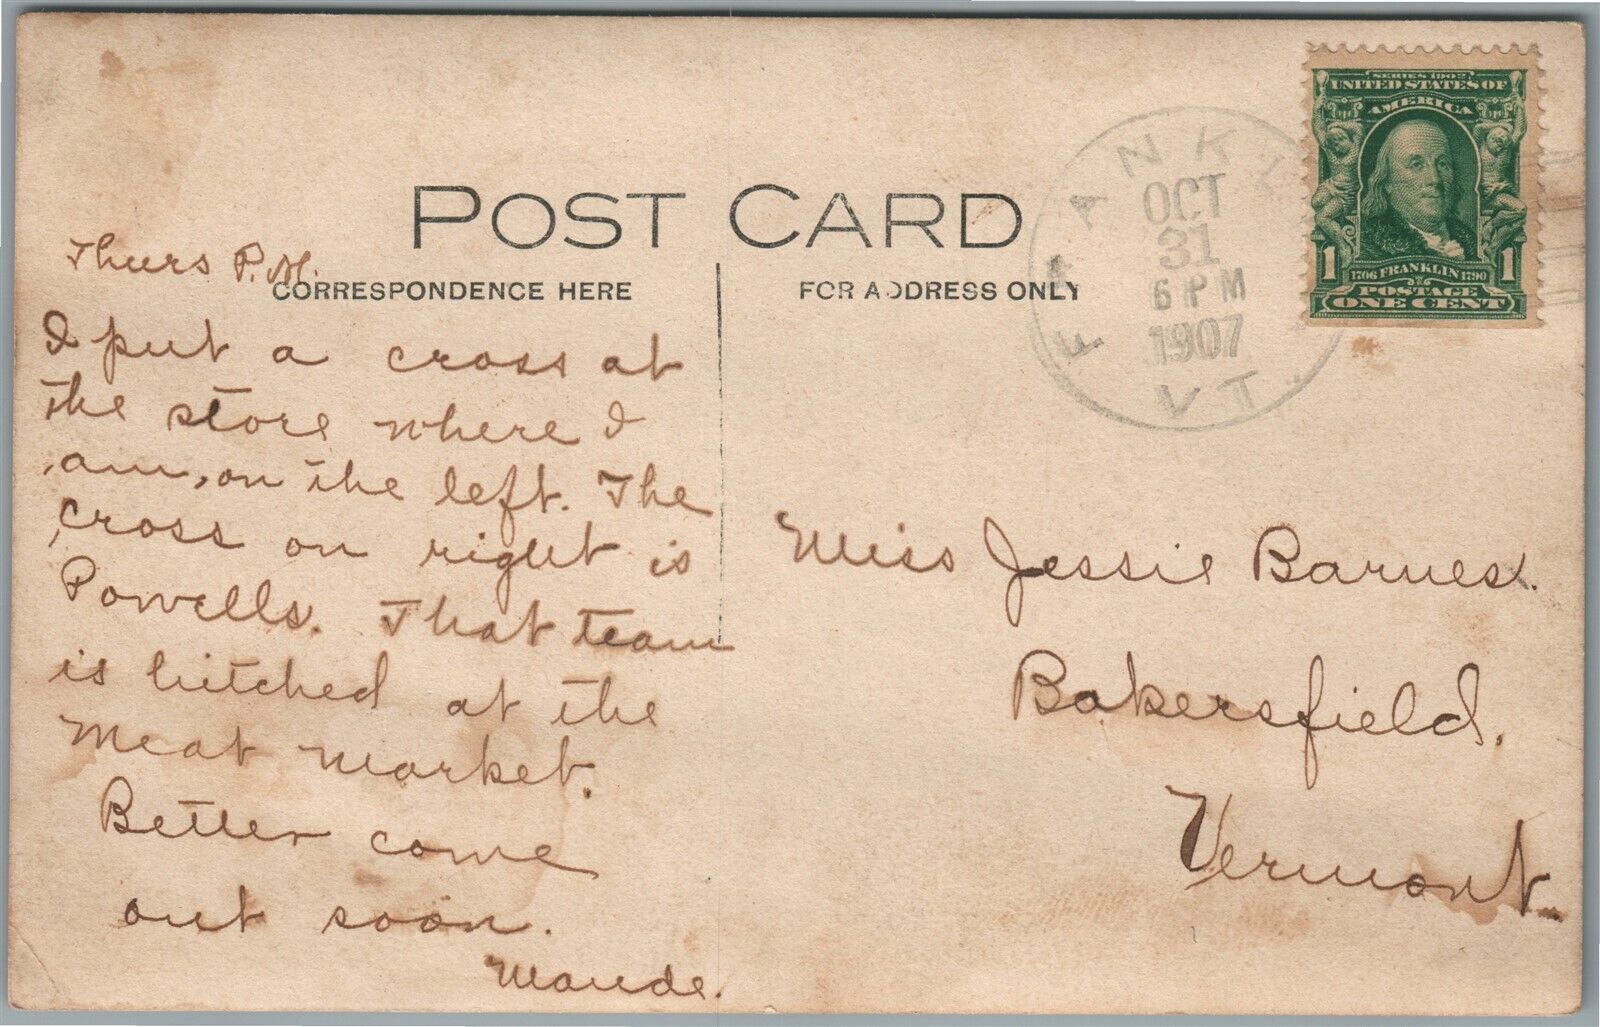 POST CARD
CORRESPONDENCE HERE
FOR ADDRESS ONLY
Thurs P.M.
I put a cross at
the store where I
am, on the left. The
cross on right is
Powells. That team
is hitched at the
Meat Market.
Better come
out soon.
Maude.
Miss Jessie Barnes.
Bakersfield,
Vermont.
FRANKL
OCT
31
6 PM
1907
VT.
SERIES 1902
UNITED STATES OF
AMERICA
1 1706 FRANKLIN 1790 1
POSTAGE
ONE CENT